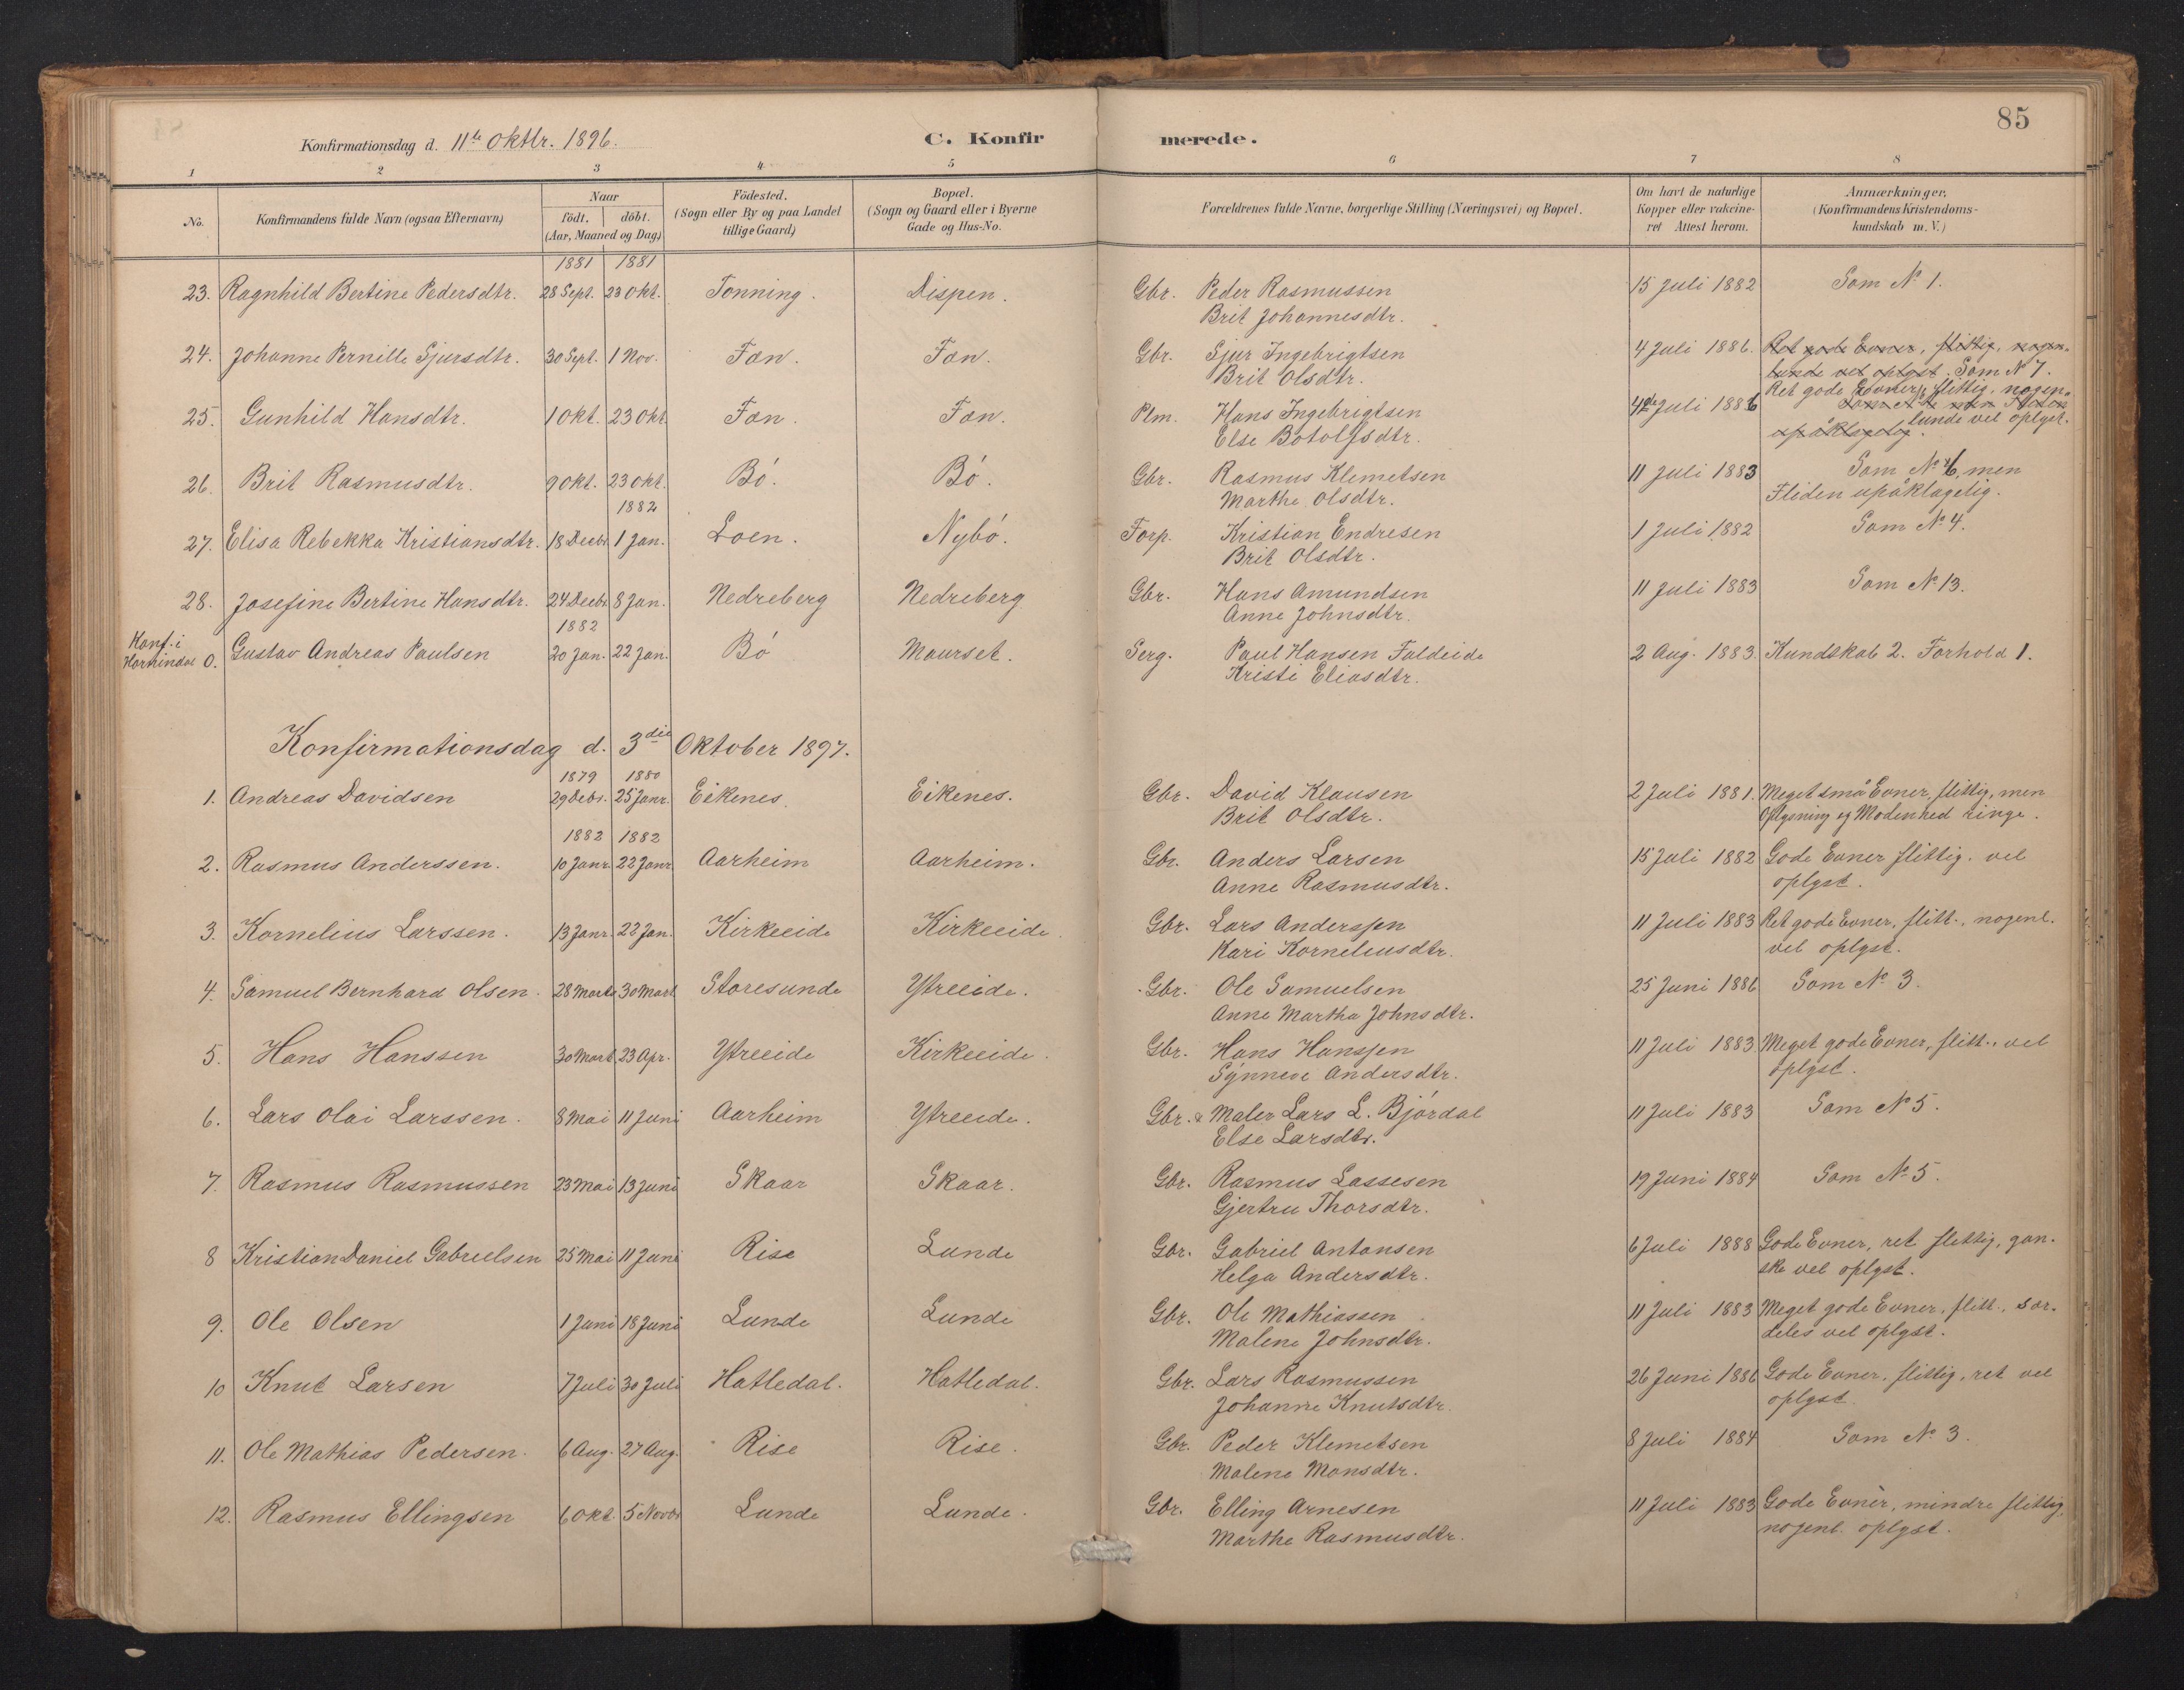 85
Konfirmationsdag d. 11te Oktbr. 1896.
C. Konfirmerede.
1 2 3 4 5 6 7 8
No.
Konfirmandens fulde Navn (ogsaa Efternavn)
Naar
födt. döbt.
(Aar, Maaned og Dag)
Födested.
(Sogn eller By og paa Landet
tillige Gaard)
Bopæl.
(Sogn og Gaard eller i Byerne
Gade og Hus-No.
Forældrenes fulde Navne, borgerlige Stilling (Næringsvei) og Bopæl.
Om havt de naturlige
Kopper eller vakcine-
ret Attest herom.
Anmærkninger.
(Konfirmandens Kristendoms-
kundskab m. V.)
1881 1881
23. Ragnhild Bertine Pedersdtr. 28 Sept. 23 Okt. Tonning. Dispen. Gbr. Peder Rasmussen 15 Juli 1882 Som No 1.
Brit Johannesdtr.
24. Johanne Pernille Sjursdtr. 30 Sept. 1 Nov. Fæn. Fæn. Gbr. Sjur Ingebrigtsen 4 Juli 1886. Ret gode Evner, flittig, nogen-
Brit Olsdtr. lunde vel oplyst. Som No 7.
25. Gunhild Hansdtr. 1 Okt. 23 Okt. Fæn. Fæn. Plm. Hans Ingebrigtsen 4de Juli 1886 Ret gode Evner, flittig, nogen-
Else Botolfsdtr. lunde vel oplyst.
upåklagelig.
26. Brit Rasmusdtr. 9 Okt. 23 Okt. Bö. Bö. Gbr. Rasmus Klemetsen 11 Juli 1883 Som No 6, men
Marthe Olsdtr. Fliden upåklagelig.
1882
27. Elisa Rebekka Kristiansdtr. 18 Decbr. 1 Jan. Loen. Nybö. Forp. Kristian Endresen 1 Juli 1882 Som No 4.
Brit Olsdtr.
28. Josefine Bertine Hansdtr. 24 Decbr. 8 Jan. Nedreberg Nedreberg Gbr. Hans Amundsen 11 Juli 1883 Som No 13.
Anne Johnsdtr.
1882
Konf. i
Hornindal 0. Gustav Andreas Paulsen 20 Jan. 22 Jan. Bö Maurset. Serg. Paul Hansen Faldeide 2 Aug. 1883. Kundskab 2. Forhold 1.
Kristi Eliasdtr.
Konfirmationsdag d. 3die Oktober 1897.
1879 1880
1. Andreas Davidsen 29 Debr. 25 Janr. Eikenes. Eikenes. Gbr. David Klausen 2 Juli 1881. Meget små Evner, flittig, men
Brit Olsdtr. Oplysning og Modenhed ringe.
1882 1882
2. Rasmus Anderssen. 10 Janr. 22 Janr. Aarheim Aarheim. Gbr. Anders Larsen 15 Juli 1882 Gode Evner flittig. vel
Anne Rasmusdtr. oplyst.
3. Kornelius Larssen. 13 Janr. 22 Jan. Kirkeeide Kirkeeide. Gbr. Lars Anderssen 11 Juli 1883 Ret gode Evner, flitt., nogenl.
Kari Korneliusdtr. vel oplyst.
4. Samuel Bernhard Olsen. 28 Marts 30 Mart Storesunde Ytreeide. Gbr. Ole Samuelsen 25 Juni 1886 Som No 3.
Anne Martha Johnsdtr.
5. Hans Hanssen 30 Mart 23 Apr. Ytreeide Kirkeeide. Gbr. Hans Hanssen 11 Juli 1883 Meget gode Evner, flitt., vel
Synneve Andersdtr. oplyst.
6. Lars Olai Larssen. 8 Mai 11 Juni Aarheim Ytreeide. Gbr. & Maler Lars L. Björdal 11 Juli 1883 Som No 5.
Else Larsdtr.
7. Rasmus Rasmussen 23 Mai 13 Juni Skaar Skaar. Gbr. Rasmus Lassesen 19 Juni 1884 Som No 5.
Gjertru Thorsdtr.
8 Kristian Daniel Gabrielsen 25 Mai 11 Juni Rise Lunde Gbr. Gabriel Antonsen 6 Juli 1888 Gode Evner, ret flittig, gan-
Helga Andersdtr. ske vel oplyst.
9. Ole Olsen 1 Juni 18 Juni Lunde Lunde Gbr. Ole Mathiassen 11 Juli 1883 Meget gode Evner, flitt., sær-
Malene Johnsdtr. deles vel oplyst.
10 Knut Larsen 7 Juli 30 Juli Hatledal. Hatledal. Gbr. Lars Rasmussen 26 Juni 1886 Gode Evner, flittig, ret vel
Johanne Knutsdtr. oplyst.
11. Ole Mathias Pedersen. 6 Aug. 27 Aug. Rise Rise. Gbr. Peder Klemetsen 8 Juli 1884 Som No 3.
Malene Monsdtr.
12. Rasmus Ellingsen 6 Okt. 5 Novbr Lunde Lunde. Gbr. Elling Arnesen 11 Juli 1883 Gode Evner, mindre flittig,
Marthe Rasmusdtr. nogenl. oplyst.